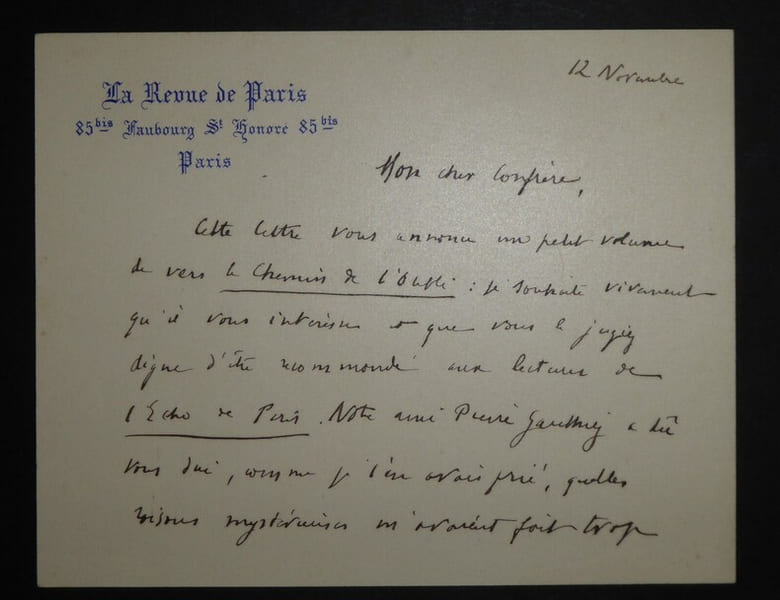 La Revue de Paris
85bis Faubourg St Honoré 85bis
Paris
12 Novembre
Mon cher Confrère,
Cette lettre vous annonce un petit volume
de vers le Chemin de l'Oubli : je souhaite vivement
qu'il vous intéresse et que vous le jugiez
digne d'être recommandé aux lecteurs de
l'Echo de Paris. Notre ami Pierre Gauthiez a dû
vous dire, comme je l'en avais prié, quelles
raisons mystérieuses m'avaient fait trop